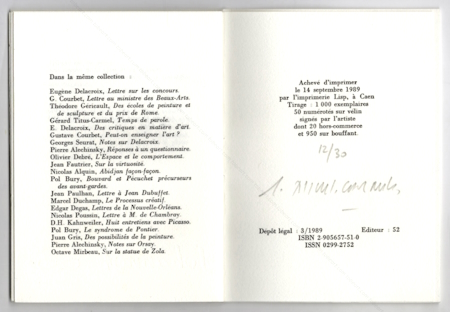 Dans la même collection :
Eugène Delacroix, Lettre sur les concours.
G. Courbet, Lettre au ministre des Beaux-Arts.
Théodore Géricault, Des écoles de peinture et
de sculpture et du prix de Rome.
Gérard Titus-Carmel, Temps de parole.
E. Delacroix, Des critiques en matière d'art
Gustave Courbet, Peut-on enseigner l'art ?
Georges Seurat, Notes sur Delacroix.
Pierre Alechinsky, Réponses à un questionnaire.
Olivier Debré, L'Espace et le comportement.
Jean Fautrier, Sur la virtuosité.
Nicolas Alquin, Abidjan façon-façon.
Pol Bury, Bouvard et Pécuchet précurseurs
des avant-gardes.
Jean Paulhan, Lettre à Jean Dubuffet.
Marcel Duchamp, Le Processus créatif.
Edgar Degas, Lettres de la Nouvelle-Orléans.
Nicolas Poussin, Lettre à M. de Chambray.
D.H. Kahnweiler, Huit entretiens avec Picasso.
Pol Bury, Le syndrome de Pontier.
Juan Gris, Des possibilités de la peinture.
Pierre Alechinsky, Notes sur Orsay.
Octave Mirbeau, Sur la statue de Zola.
Achevé d'imprimer
le 14 septembre 1989
par l'imprimerie Lisp, à Caen
Tirage : 1 000 exemplaires
50 numérotés sur vélin
signés par l'artiste
dont 20 hors-commerce
et 950 sur bouffant
12/30
Dépôt légal : 3/1989 Editeur : 52
ISBN 2-905657-51-0
ISSN 0299-2752